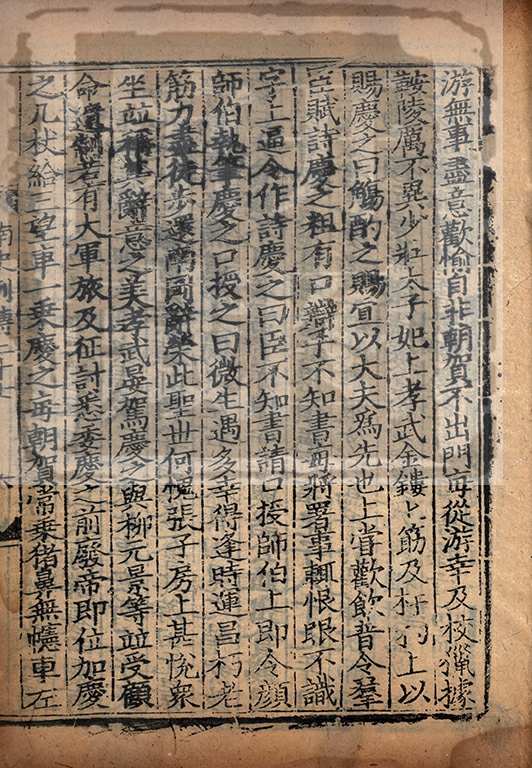 游無事盡意歡愉自非朝賀不出門每從游幸及校獵據
鞍陵厲不異少壯太子妃上孝武金鏤匕筯及杅杓上以
賜慶之曰觴酌之賜宜以大夫爲先也上嘗歡飲普令羣
臣賦詩慶之粗有口辯手不知書每將署事輒恨眼不識
字上逼令作詩慶之曰臣不知書請口授師伯上即令顔
師伯執筆慶之口授之曰微生遇多幸得逢時運昌朽老
筋力盡徒步還南岡辭榮此聖世何愧張子房上甚悅衆
坐並稱其辭意之美孝武晏駕慶之與柳元景等並受顧
命遺制若有大軍旅及征討悉委慶之前廢帝即位加慶
之几杖給三望車一乗慶之每朝賀常乗猪鼻無幰車左
南史列傳二十七